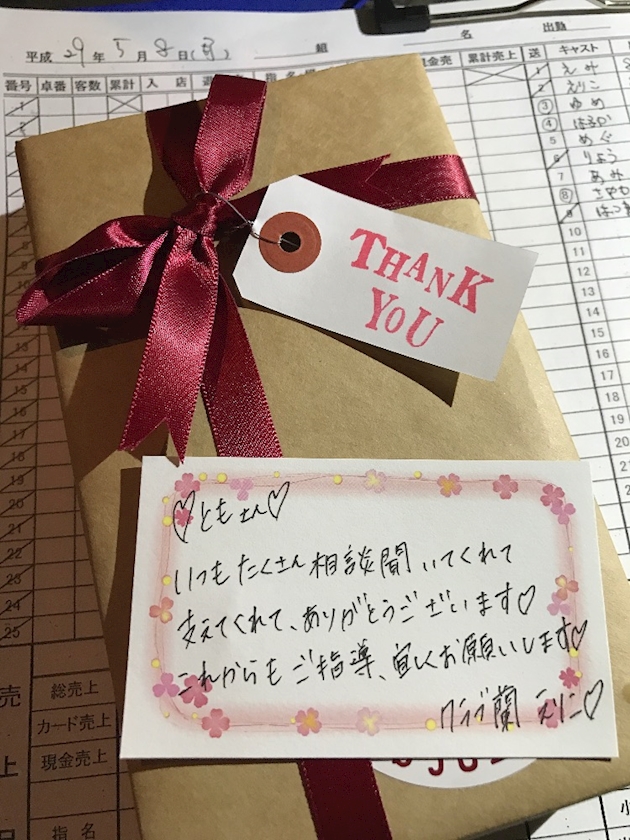 平成 29 年 5 月 8 日(月)
組
名
出勤
番号 卓番 客数 累計 入 店
現金売 累計売上 送 キャスト
1 えみ
2 えりこ
③ ゆめ
④ はるか
5 めぐ
6 りょう
7 あみ
⑧ さやか
9
10
11
12
13
14
15
16
17
18
19
20
THANK
YOU
♡ともさん♡
いつもたくさん相談聞いてくれて
支えてくれて、ありがとうございます♡
これからもご指導、宜しくお願いします♡
クラブ蘭 えりこ♡
21
22
23
24
25
総売上
カード売上
現金売上
指名